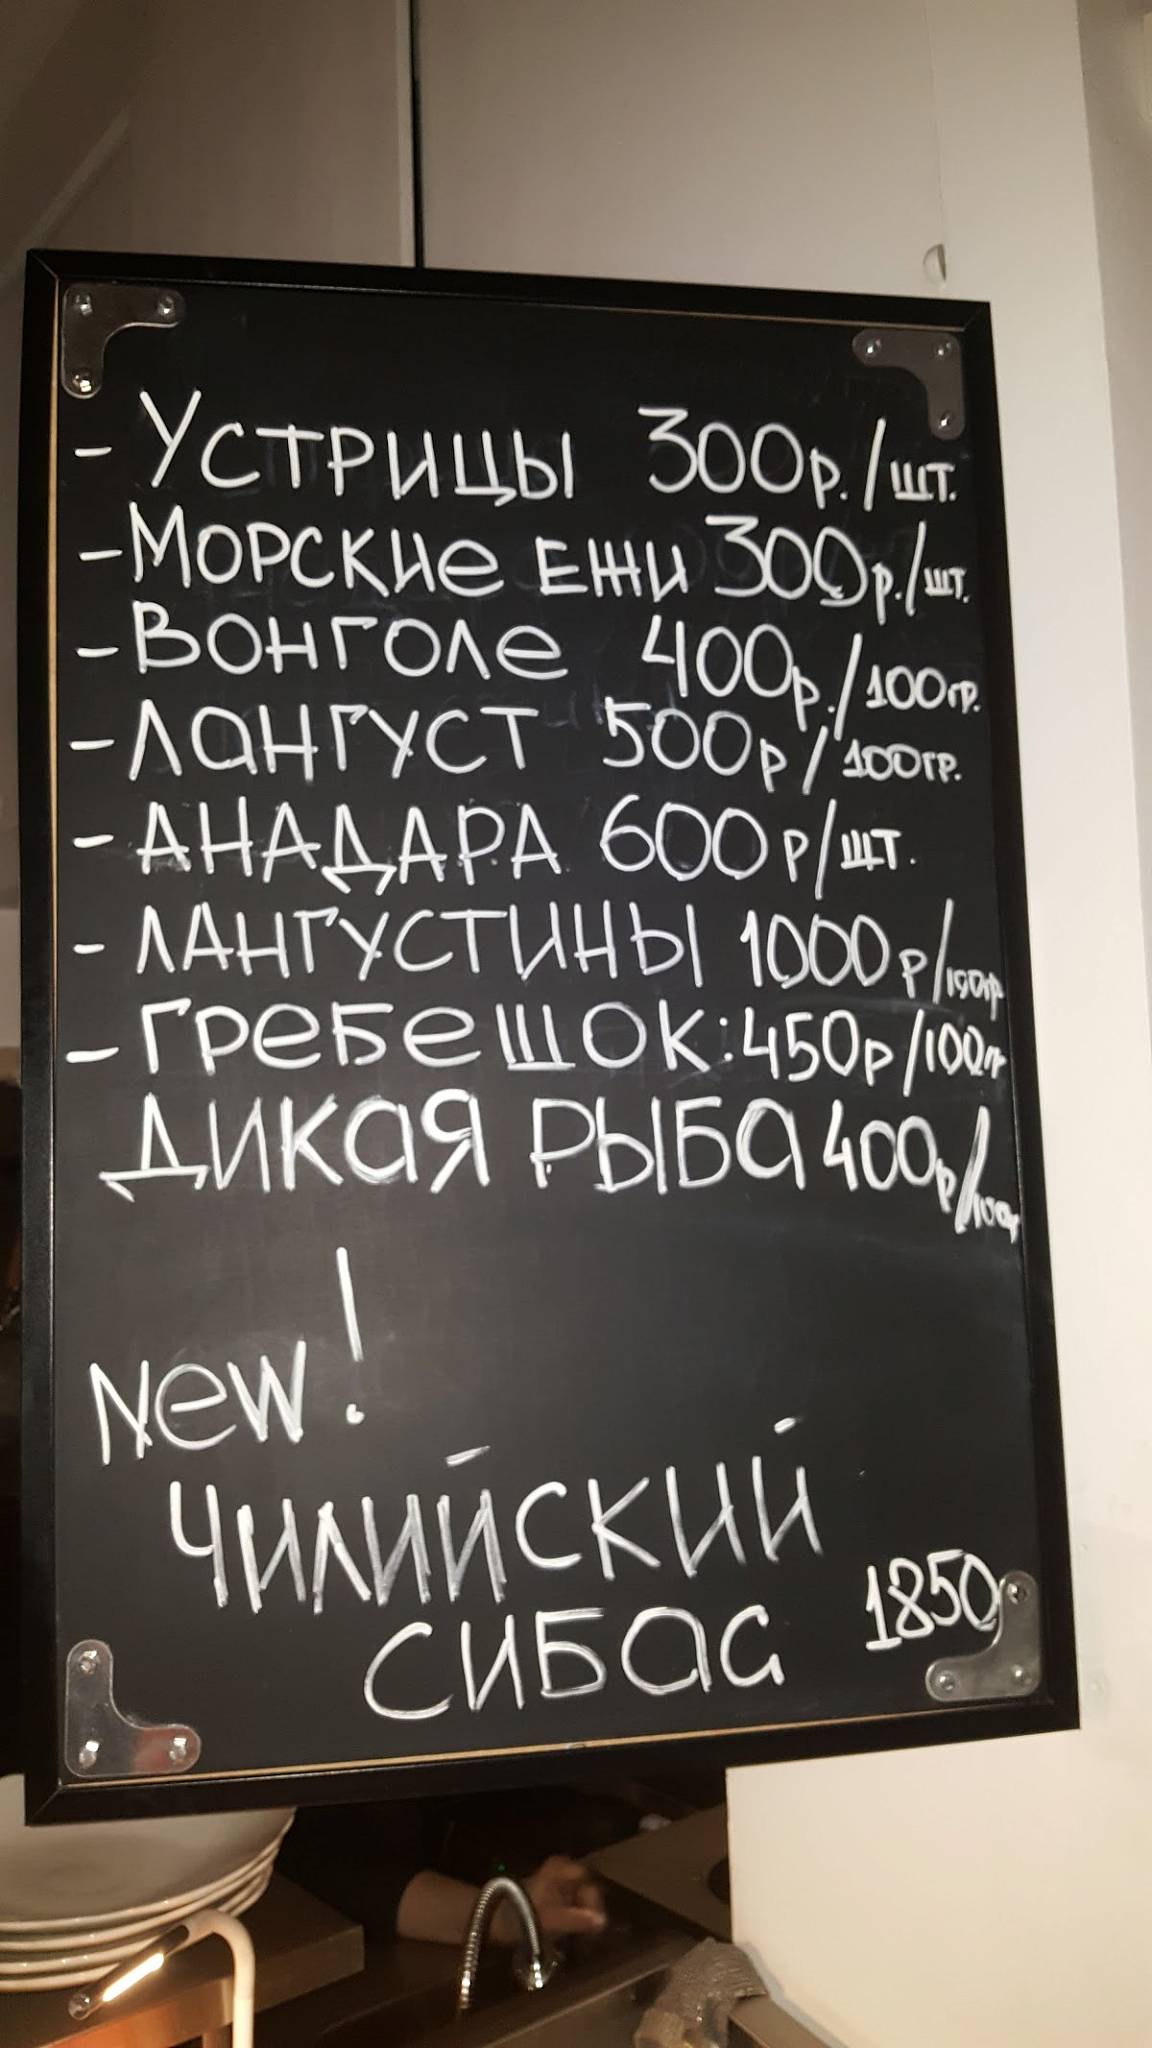 - Устрицы 300р./шт.
- Морские ежи 300р./шт.
- Вонголе 400р./100гр.
- Лангуст 500р/100гр.
- АНАДАРА 600р/шт.
- ЛАНГУСТИНЫ 1000р/100гр
- Гребешок: 450р/100гр
Дикая рыба 400р/100г
New!
Чилийский
сибас 1850